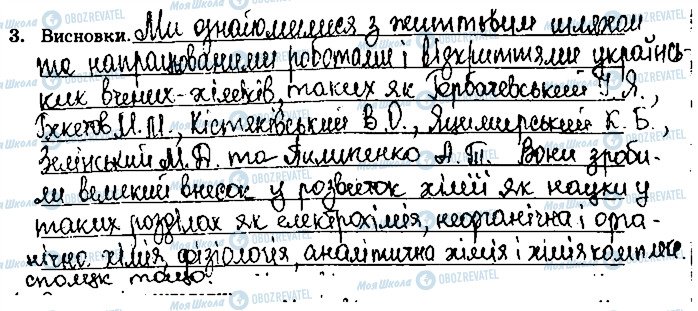 3. Висновки. Ми ознайомилися з життєвим шляхом
та напрацьованими роботами і відкриттями українсь-
ких вчених-хіміків, таких як Горбачевський І. Я.,
Бекетов М.М., Кістяківський В.О., Яцимирський К.Б.,
Зелінський М.Д. та Пилипенко А.Т. Вони зроби-
ли великий внесок у розвиток хімії як науки у
таких розділах як електрохімія, неорганічна і орга-
нічна хімія, фізіологія, аналітична хімія і хімія комплекс.
сполук тощо.